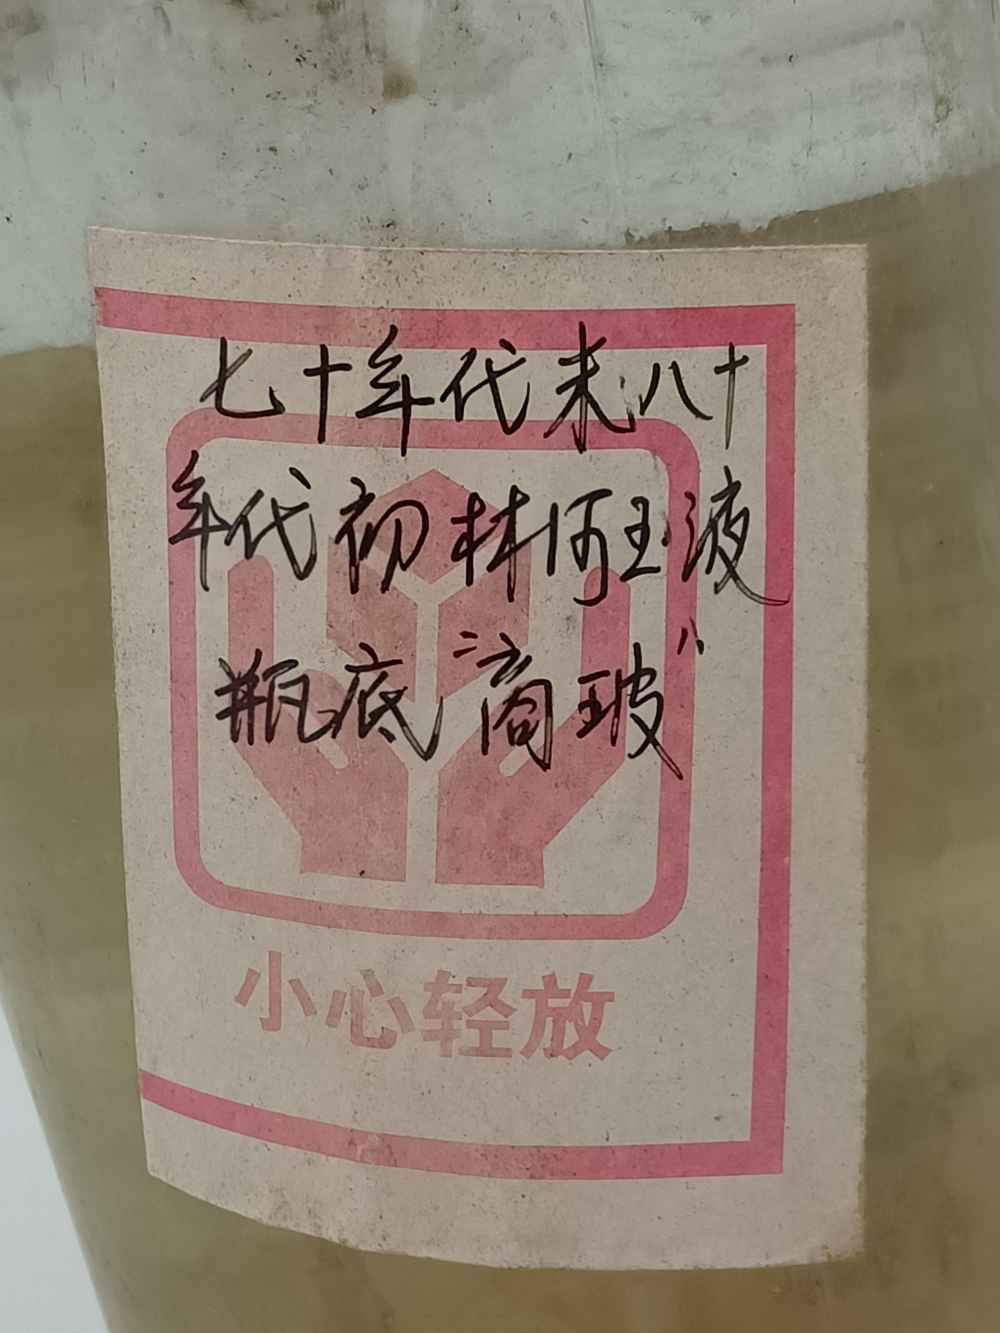 七十年代末八十
年代初林河玉液
瓶底"商玻"
小心轻放